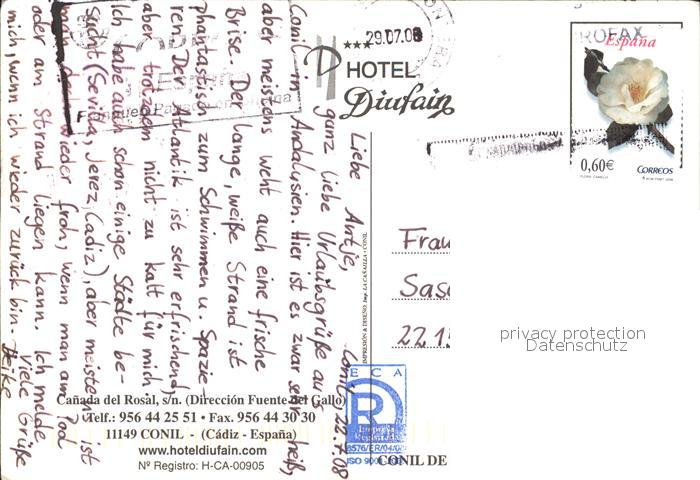 Conil, 22.7.08
Liebe Antje,
ganz liebe Urlaubsgrüße aus
Conil in Andalusien. Hier ist es zwar sehr heiß,
aber meistens weht auch eine frische
Brise. Der lange, weiße Strand ist
phantastisch zum Schwimmen u. Spazie-
ren. Der Atlantik ist sehr erfrischend,
aber trotzdem nicht zu kalt für mich.
Ich habe auch schon einige Städte be-
sucht (Sevilla, Jerez, Cadiz), aber meistens ist
man doch wieder froh, wenn man am Pool
oder am Strand liegen kann. Ich melde
mich, wenn ich wieder zurück bin. Viele Grüße
Heike
29.07.08
***
HOTEL
Diufain
ROFAX
España
0,60€
CORREOS
Frau
Sas
22 1
privacy protection
Datenschutz
IMPRESIÓN & DISEÑO: Imp. LA CAÑAILLA • CONIL
Cañada del Rosal, s/n. (Dirección Fuente del Gallo)
Telf.: 956 44 25 51 • Fax. 956 44 30 30
11149 CONIL - (Cádiz - España)
www.hoteldiufain.com
Nº Registro: H-CA-00905
E C A
R
Empresa
Registrada
8576/ER/04/0
ISO 9001:200
CONIL DE